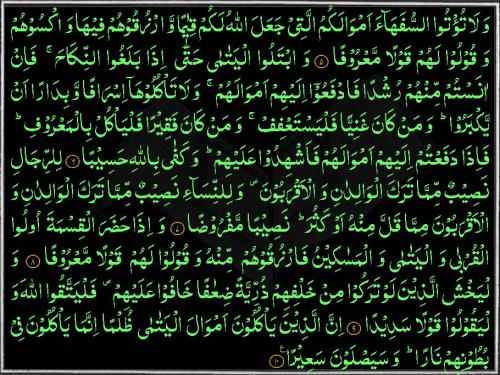 وَلَا تُؤْتُوا السُّفَهَآءَ اَمْوَالَكُمُ الَّتِیْ جَعَلَ اللّٰهُ لَكُمْ قِیٰمًا وَّارْزُقُوْهُمْ فِیْهَا وَ اكْسُوْهُمْ
وَ قُوْلُوْا لَهُمْ قَوْلًا مَّعْرُوْفًا ۵ وَ ابْتَلُوا الْیَتٰمٰی حَتّٰۤی اِذَا بَلَغُوا النِّكَاحَ ۚ فَاِنْ
اٰنَسْتُمْ مِّنْهُمْ رُشْدًا فَادْفَعُوْۤا اِلَیْهِمْ اَمْوَالَهُمْ ۚ وَ لَا تَاْكُلُوْهَاۤ اِسْرَافًا وَّ بِدَارًا اَنْ
یَّكْبَرُوْا ؕ وَ مَنْ كَانَ غَنِیًّا فَلْیَسْتَعْفِفْ ۚ وَ مَنْ كَانَ فَقِیْرًا فَلْیَاْكُلْ بِالْمَعْرُوْفِ ؕ
فَاِذَا دَفَعْتُمْ اِلَیْهِمْ اَمْوَالَهُمْ فَاَشْهِدُوْا عَلَیْهِمْ ؕ وَ كَفٰی بِاللّٰهِ حَسِیْبًا ۶ لِلرِّجَالِ
نَصِیْبٌ مِّمَّا تَرَكَ الْوَالِدٰنِ وَ الْاَقْرَبُوْنَ ۪ وَ لِلنِّسَآءِ نَصِیْبٌ مِّمَّا تَرَكَ الْوَالِدٰنِ وَ
الْاَقْرَبُوْنَ مِمَّا قَلَّ مِنْهُ اَوْ كَثُرَ ؕ نَصِیْبًا مَّفْرُوْضًا ۷ وَ اِذَا حَضَرَ الْقِسْمَةَ اُولُوا
الْقُرْبٰی وَ الْیَتٰمٰی وَ الْمَسٰكِیْنُ فَارْزُقُوْهُمْ مِّنْهُ وَ قُوْلُوْا لَهُمْ قَوْلًا مَّعْرُوْفًا ۸ وَ
لْیَخْشَ الَّذِیْنَ لَوْ تَرَكُوْا مِنْ خَلْفِهِمْ ذُرِّیَّةً ضِعٰفًا خَافُوْا عَلَیْهِمْ ۪ فَلْیَتَّقُوا اللّٰهَ وَ
لْیَقُوْلُوْا قَوْلًا سَدِیْدًا ۹ اِنَّ الَّذِیْنَ یَاْكُلُوْنَ اَمْوَالَ الْیَتٰمٰی ظُلْمًا اِنَّمَا یَاْكُلُوْنَ فِیْ
بُطُوْنِهِمْ نَارًا ؕ وَ سَیَصْلَوْنَ سَعِیْرًا ۱۰